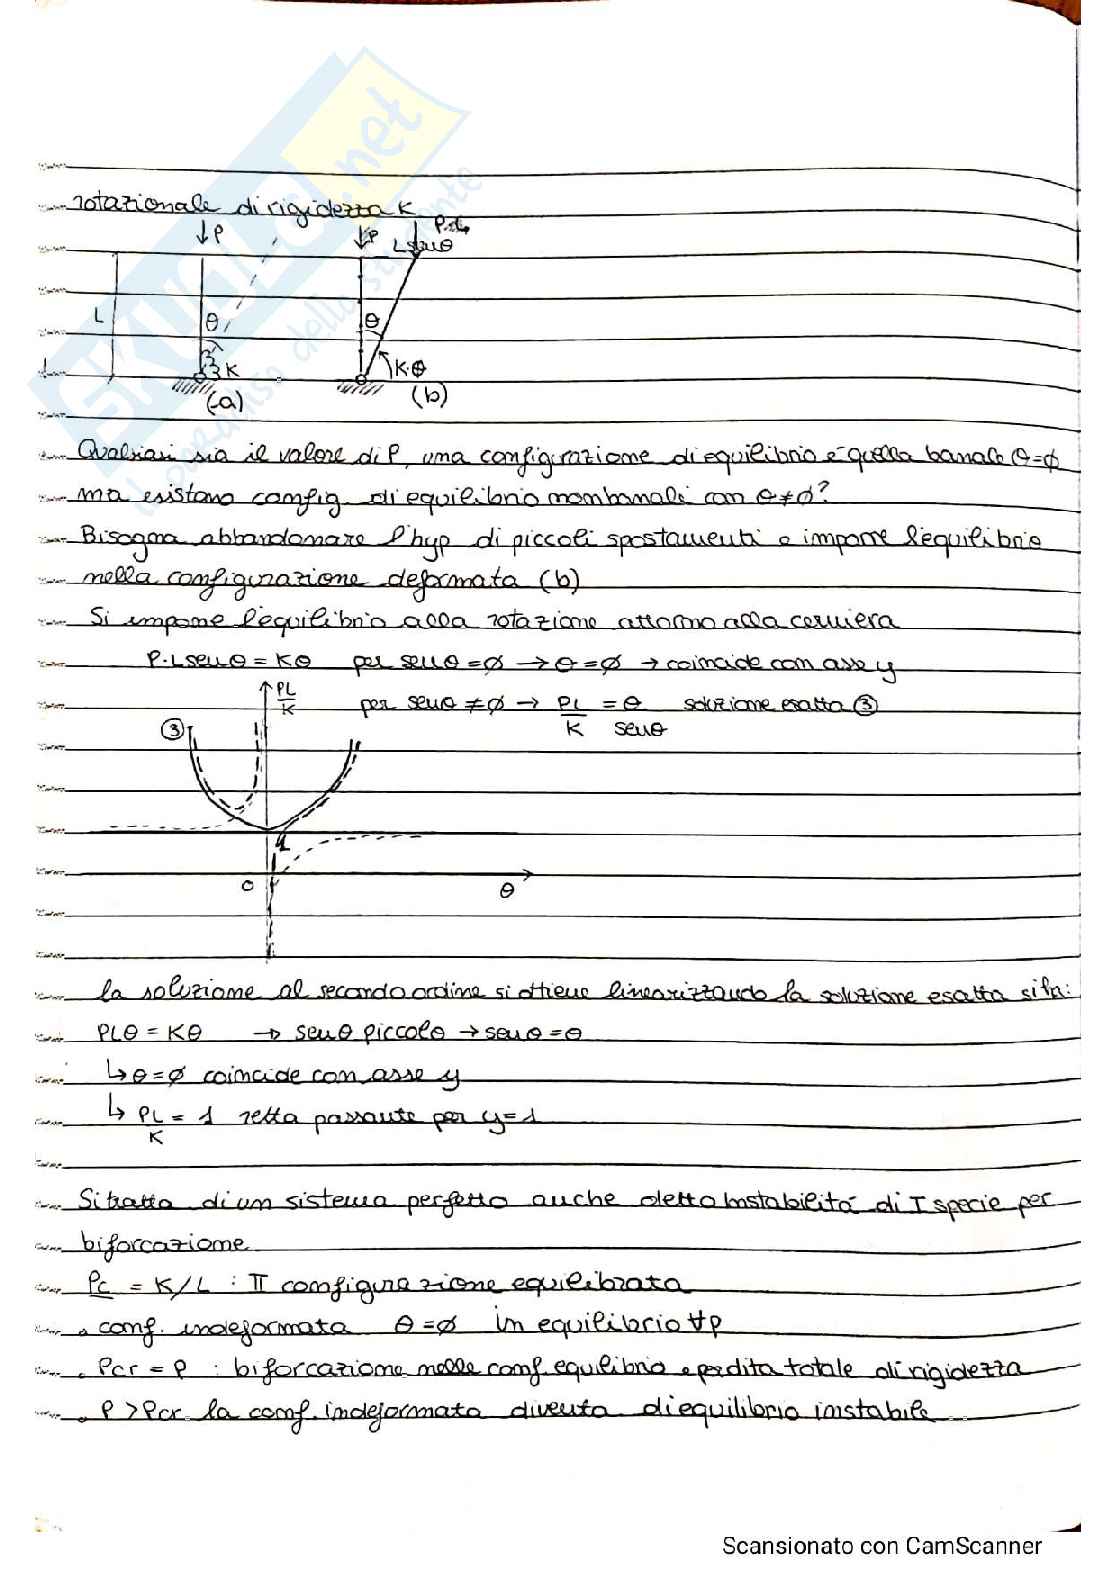 SKUOLA.net
il paradiso dello studente
rotazionale di rigidezza K
↓P ↓P L senθ
L θ θ
K K·θ
(a) (b)
Qualsiasi sia il valore di P, una configurazione di equilibrio è quella banale θ=ø
ma esistono config. di equilibrio non banali con θ≠ø?
Bisogna abbandonare l'hyp di piccoli spostamenti e imporre l'equilibrio
nella configurazione deformata (b)
Si impone l'equilibrio alla rotazione attorno alla cerniera
P·L senθ = Kθ per senθ=ø → θ=ø → coincide con asse y
PL/K per senθ≠ø → PL/K = θ/senθ soluzione esatta ③
③
1
0 θ
la soluzione al secondo ordine si ottiene linearizzando la soluzione esatta si ha:
PLθ = Kθ → senθ piccolo → senθ=θ
↳ θ=ø coincide con asse y
↳ PL/K = 1 retta passante per y=1
Si tratta di un sistema perfetto anche detto Instabilità di I specie per
biforcazione
Pc = K/L : II configurazione equilibrata
• conf. indeformata θ=ø in equilibrio ∀P
• Pcr = P : biforcazione nelle conf. equilibrio e perdita totale di rigidezza
• P>Pcr la conf. indeformata diventa di equilibrio instabile
Scansionato con CamScanner